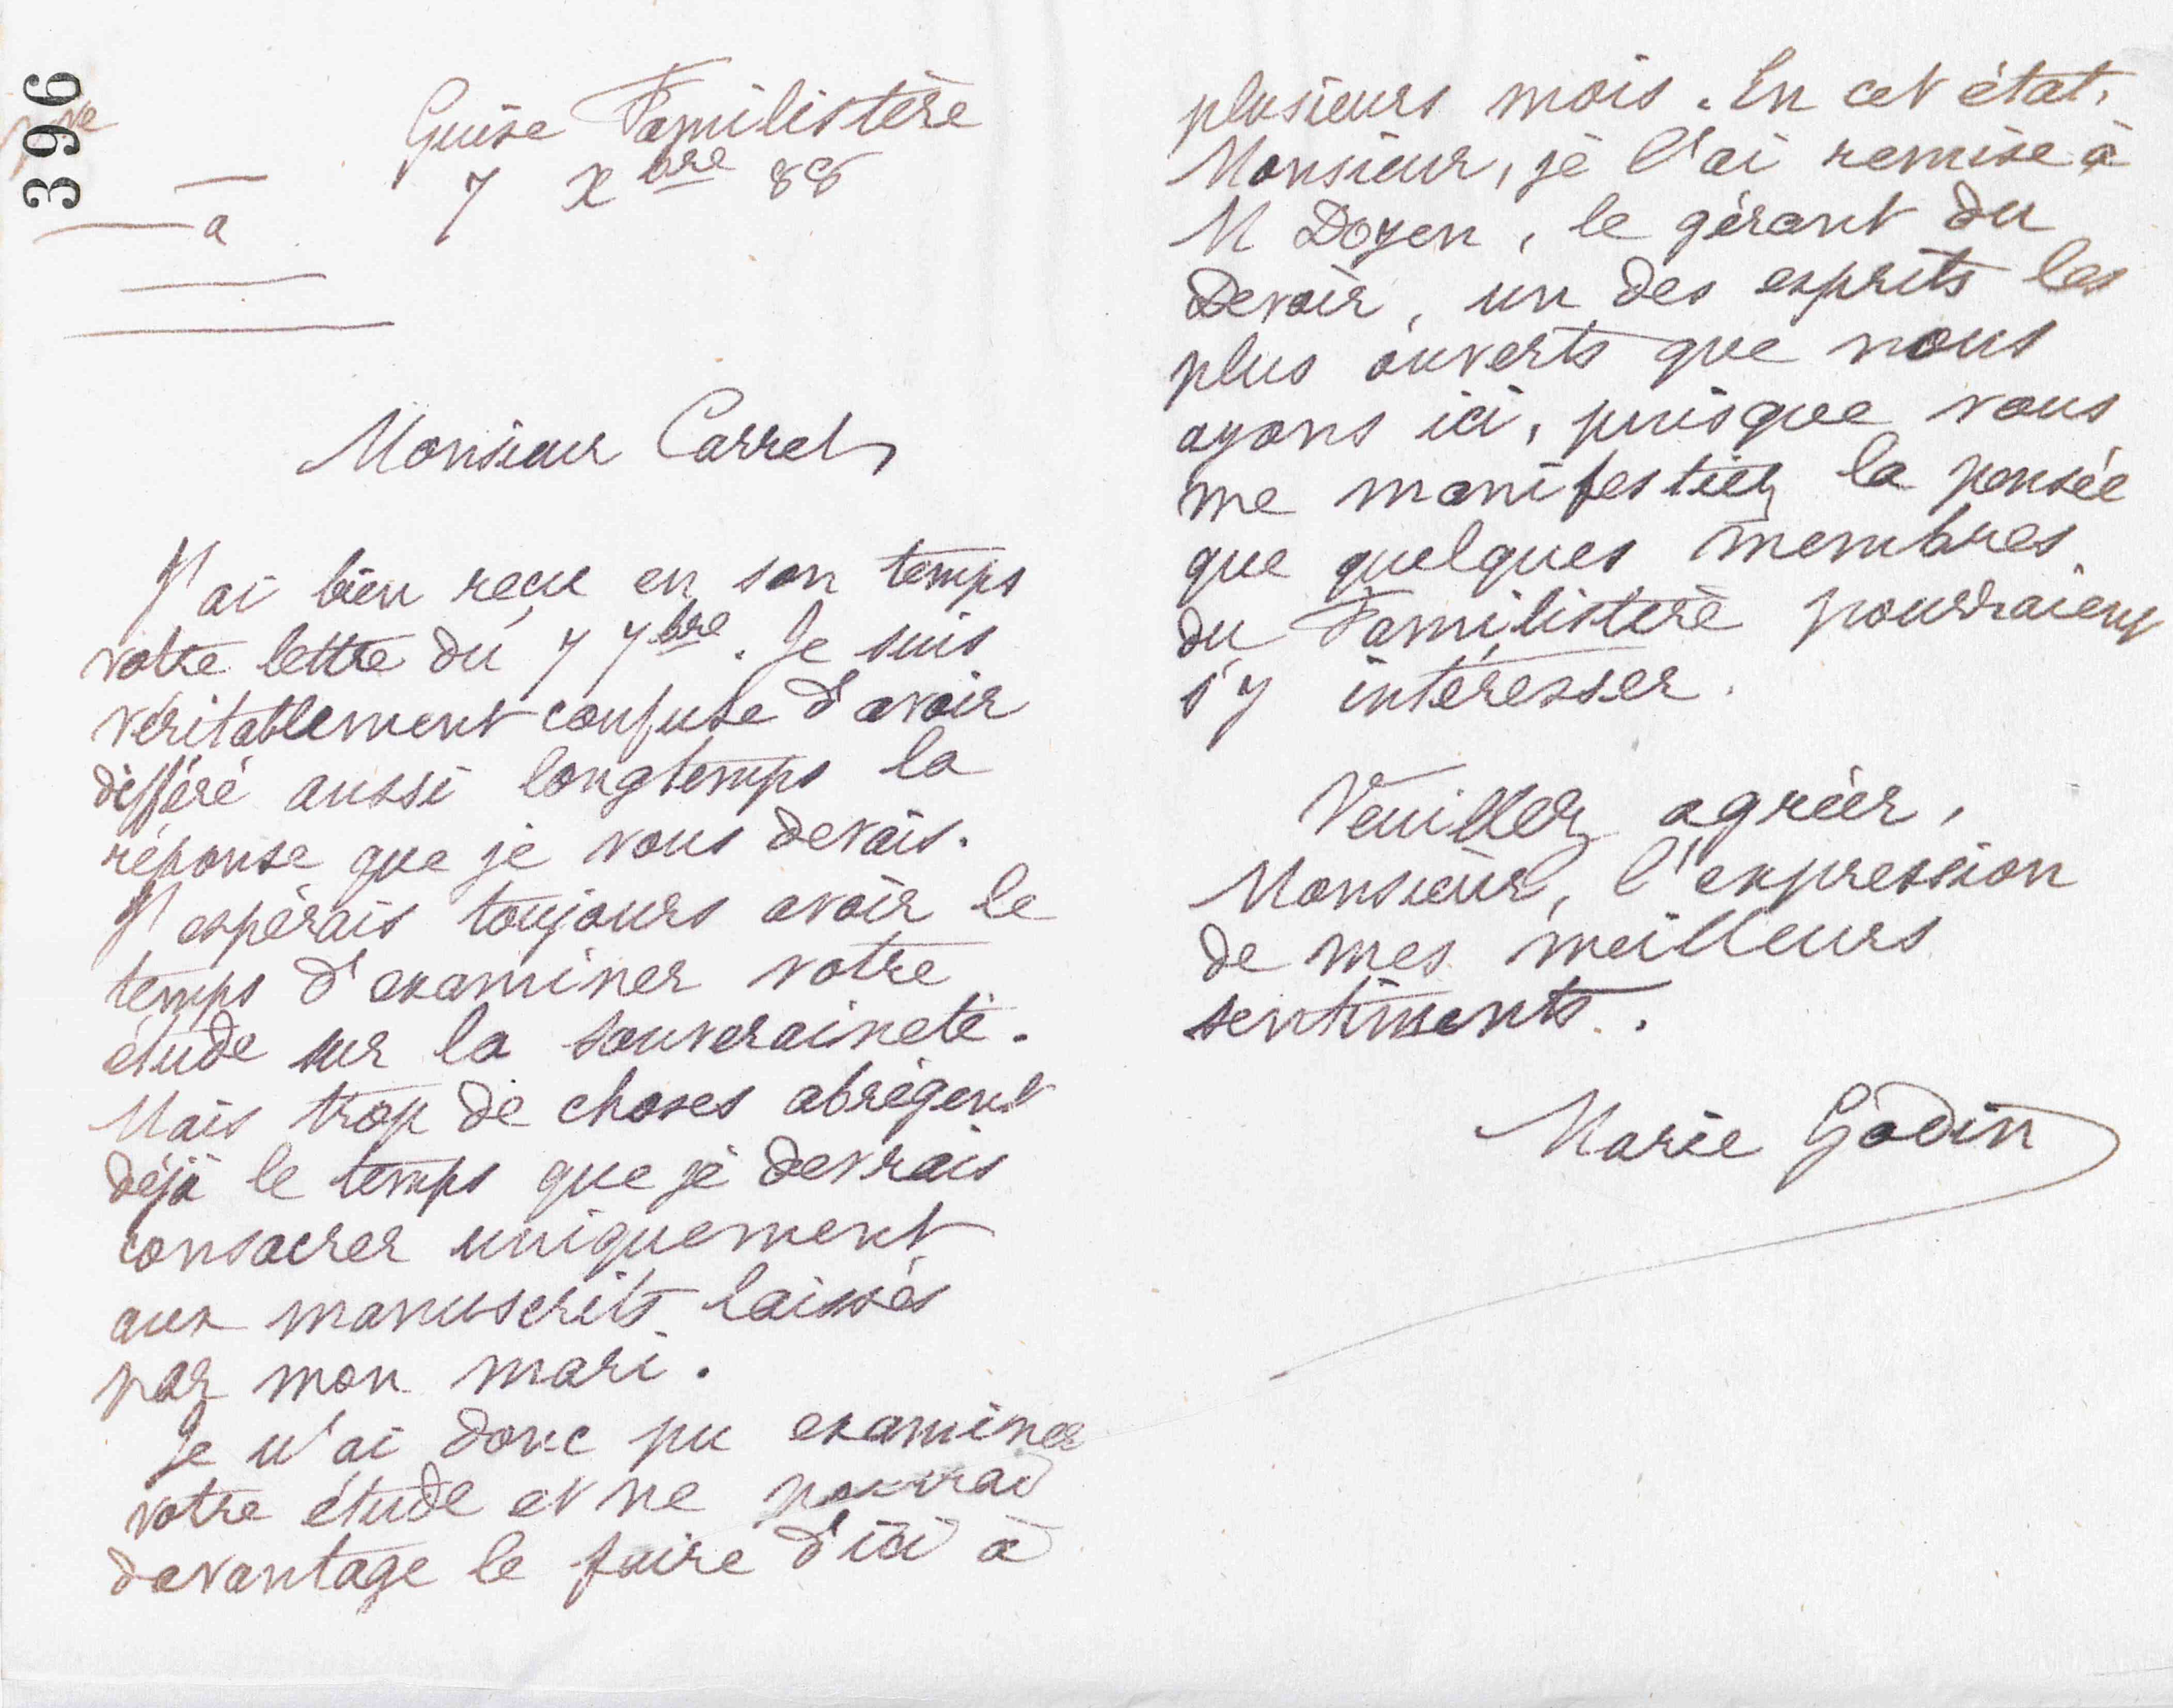 396
a
Guise Familistère
7 Xbre 88
Monsieur Carret
J'ai bien reçu en son temps
votre lettre du 7 7bre. Je suis
véritablement confuse d'avoir
différé aussi longtemps la
réponse que je vous devais.
J'espérais toujours avoir le
temps d'examiner votre
étude sur la souveraineté.
Mais trop de choses abrègent
déjà le temps que je devrais
consacrer uniquement
aux manuscrits laissés
par mon mari.
Je n'ai donc pu examiner
votre étude et ne pourrai
davantage le faire d'ici à
plusieurs mois. En cet état,
Monsieur, je l'ai remise à
M Doyen, le gérant du
Devoir, un des esprits les
plus ouverts que nous
ayons ici, puisque vous
me manifestiez la pensée
que quelques membres
du Familistère pourraient
s'y intéresser.
Veuillez agréer,
Monsieur, l'expression
de mes meilleurs
sentiments.
Marie Godin